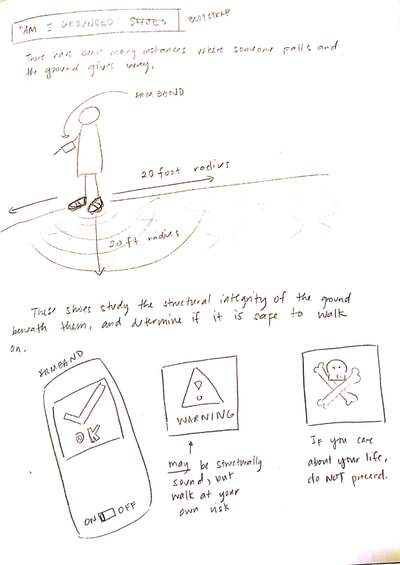 "AM I GROUNDED" SHOES BOOTSTRAP
There have been many instances where someone falls and
the ground gives way.
ARMBAND
20 foot radius
20 ft radius
These shoes study the structural integrity of the ground
beneath them, and determine if it is safe to walk
on.
ARMBAND
OK
ON OFF
!
WARNING
may be structurally
sound, but
walk at your
own risk
If you care
about your life,
do NOT proceed.